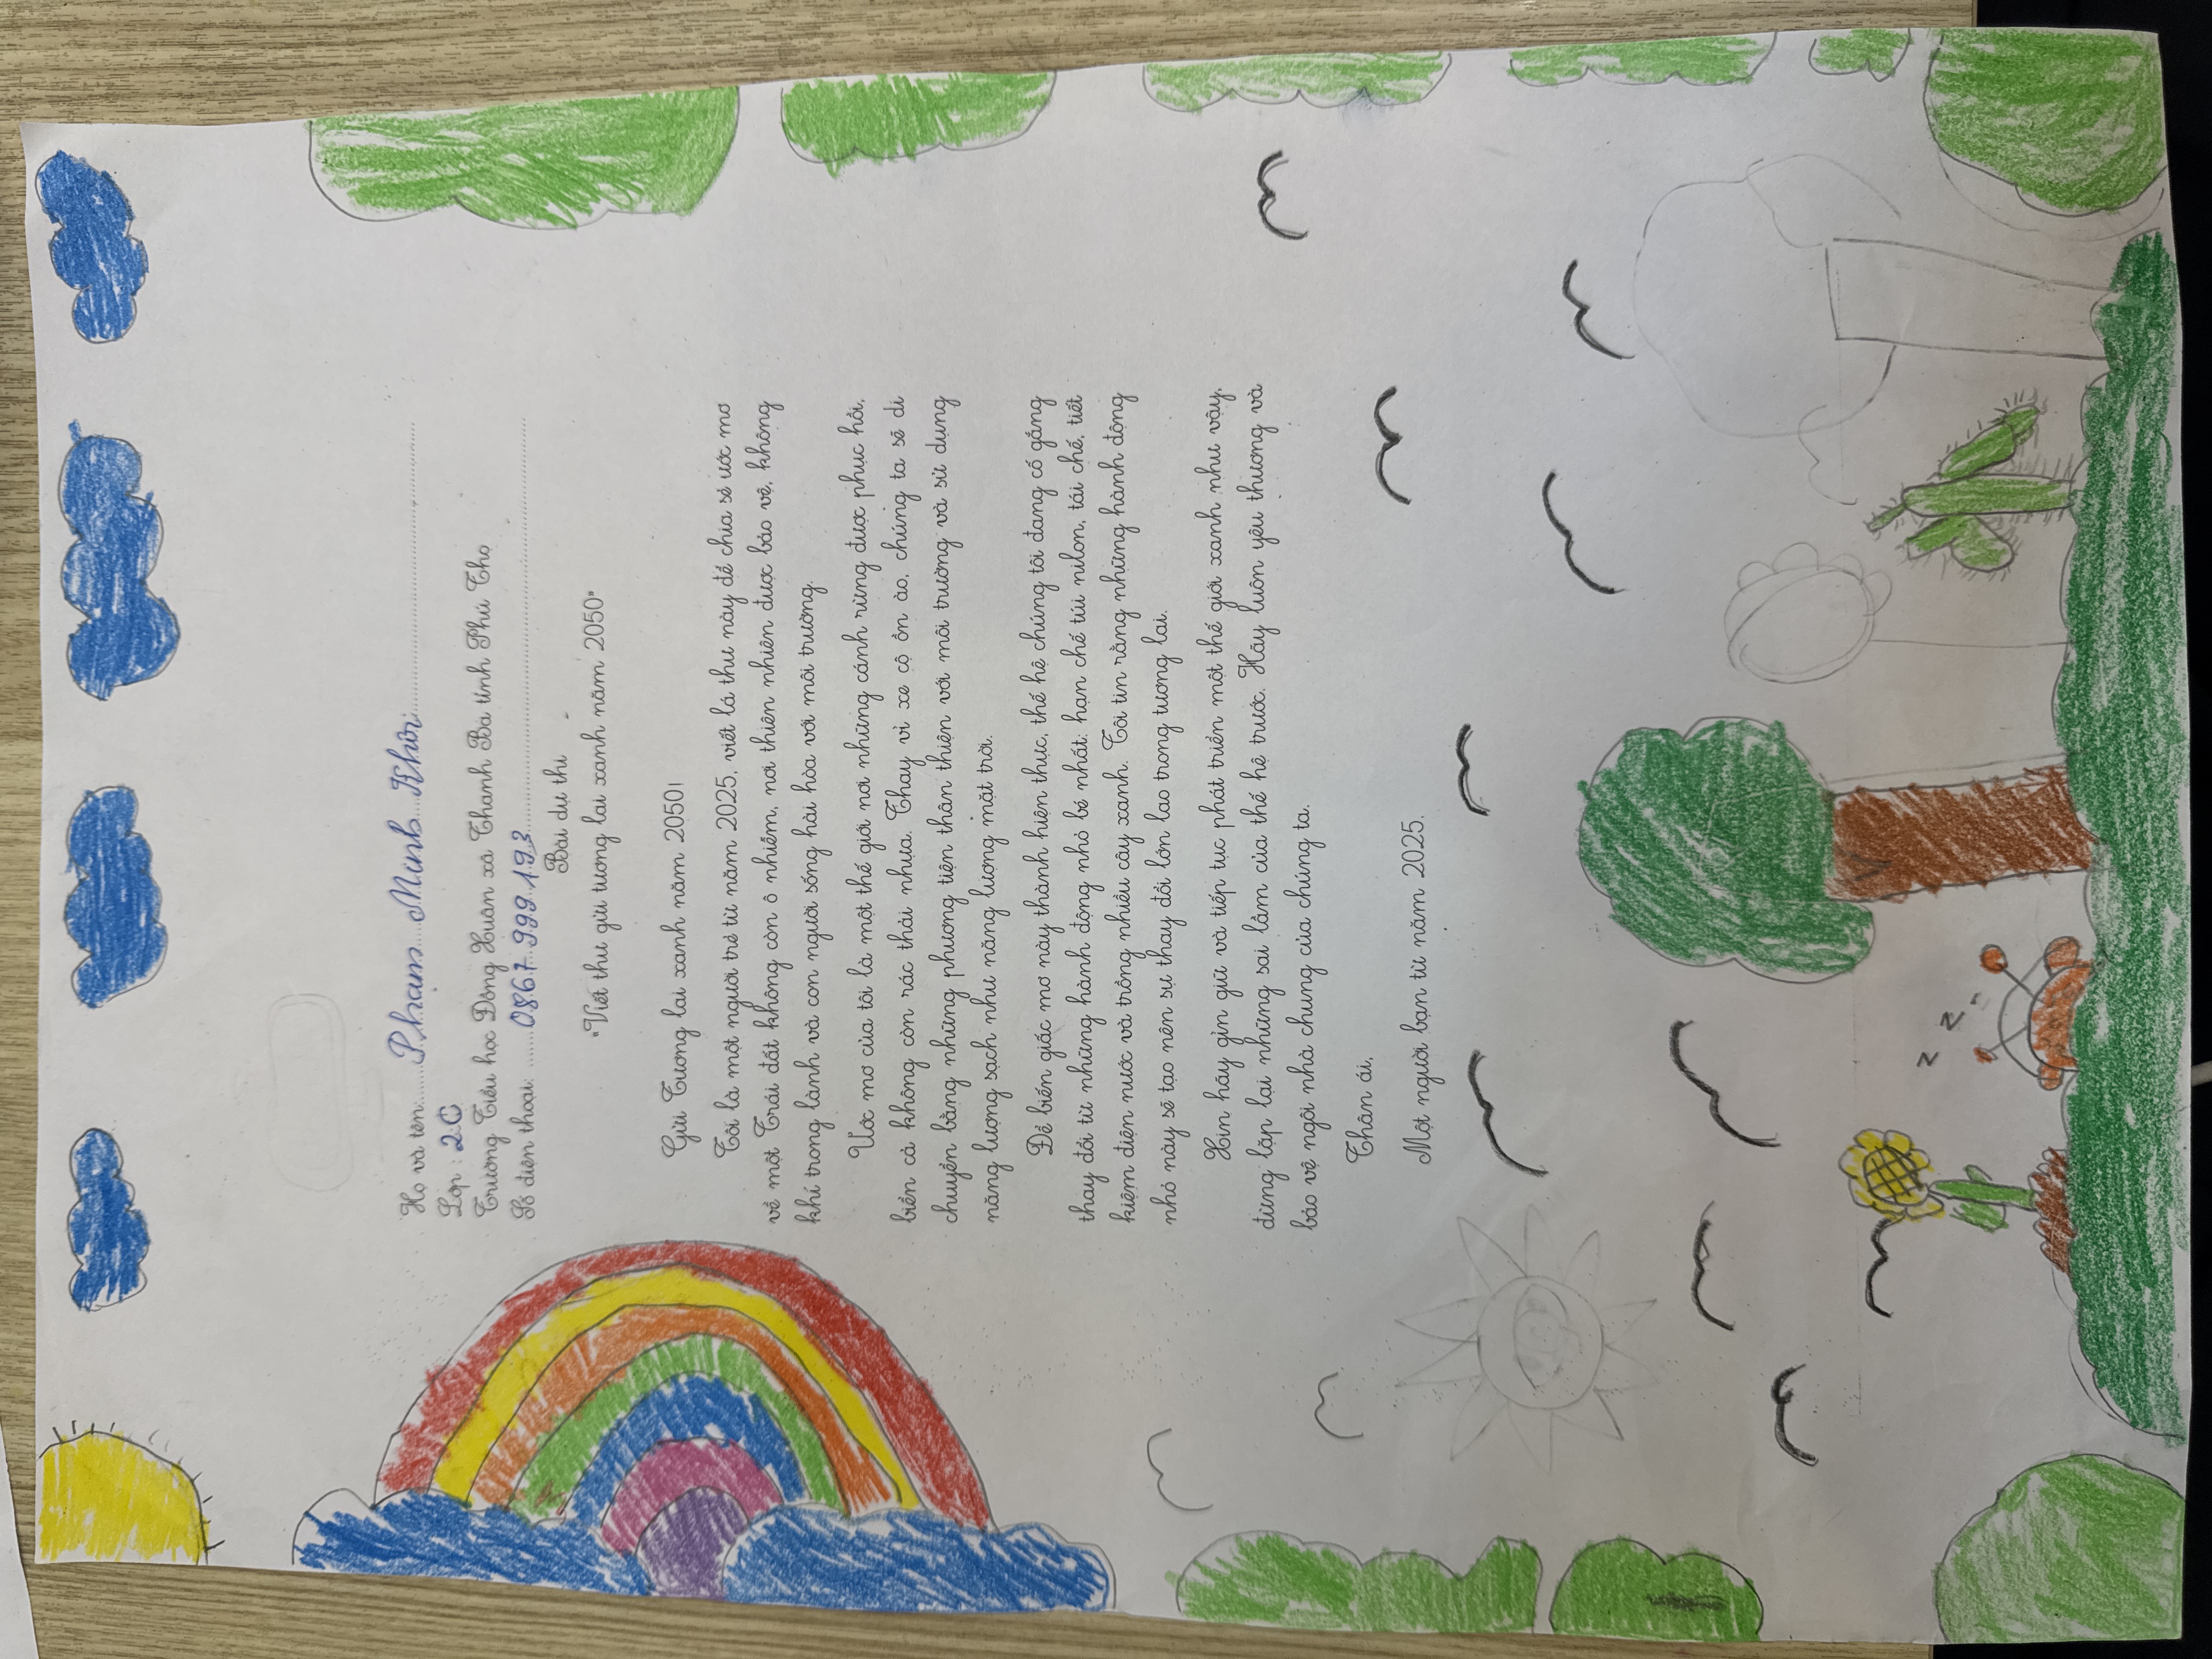 Họ và tên: Phạm Minh Khôi
Lớp : 2C
Trường Tiểu học Đông Xuân xã Thanh Ba tỉnh Phú Thọ
Số điện thoại: 0867.999.193
Bài dự thi
"Viết thư gửi tương lai xanh năm 2050"
Gửi Tương lai xanh năm 2050!
Tôi là một người trẻ từ năm 2025, viết lá thư này để chia sẻ ước mơ
về một Trái đất không còn ô nhiễm, nơi thiên nhiên được bảo vệ, không
khí trong lành và con người sống hài hòa với môi trường.
Ước mơ của tôi là một thế giới nơi những cánh rừng được phục hồi,
biển cả không còn rác thải nhựa. Thay vì xe cộ ồn ào, chúng ta sẽ di
chuyển bằng những phương tiện thân thiện với môi trường và sử dụng
năng lượng sạch như năng lượng mặt trời.
Để biến giấc mơ này thành hiện thực, thế hệ chúng tôi đang cố gắng
thay đổi từ những hành động nhỏ bé nhất: hạn chế túi nilon, tái chế, tiết
kiệm điện nước và trồng nhiều cây xanh. Tôi tin rằng những hành động
nhỏ này sẽ tạo nên sự thay đổi lớn lao trong tương lai.
Xin hãy gìn giữ và tiếp tục phát triển một thế giới xanh như vậy,
đừng lặp lại những sai lầm của thế hệ trước. Hãy luôn yêu thương và
bảo vệ ngôi nhà chung của chúng ta.
Thân ái,
Một người bạn từ năm 2025.
z z